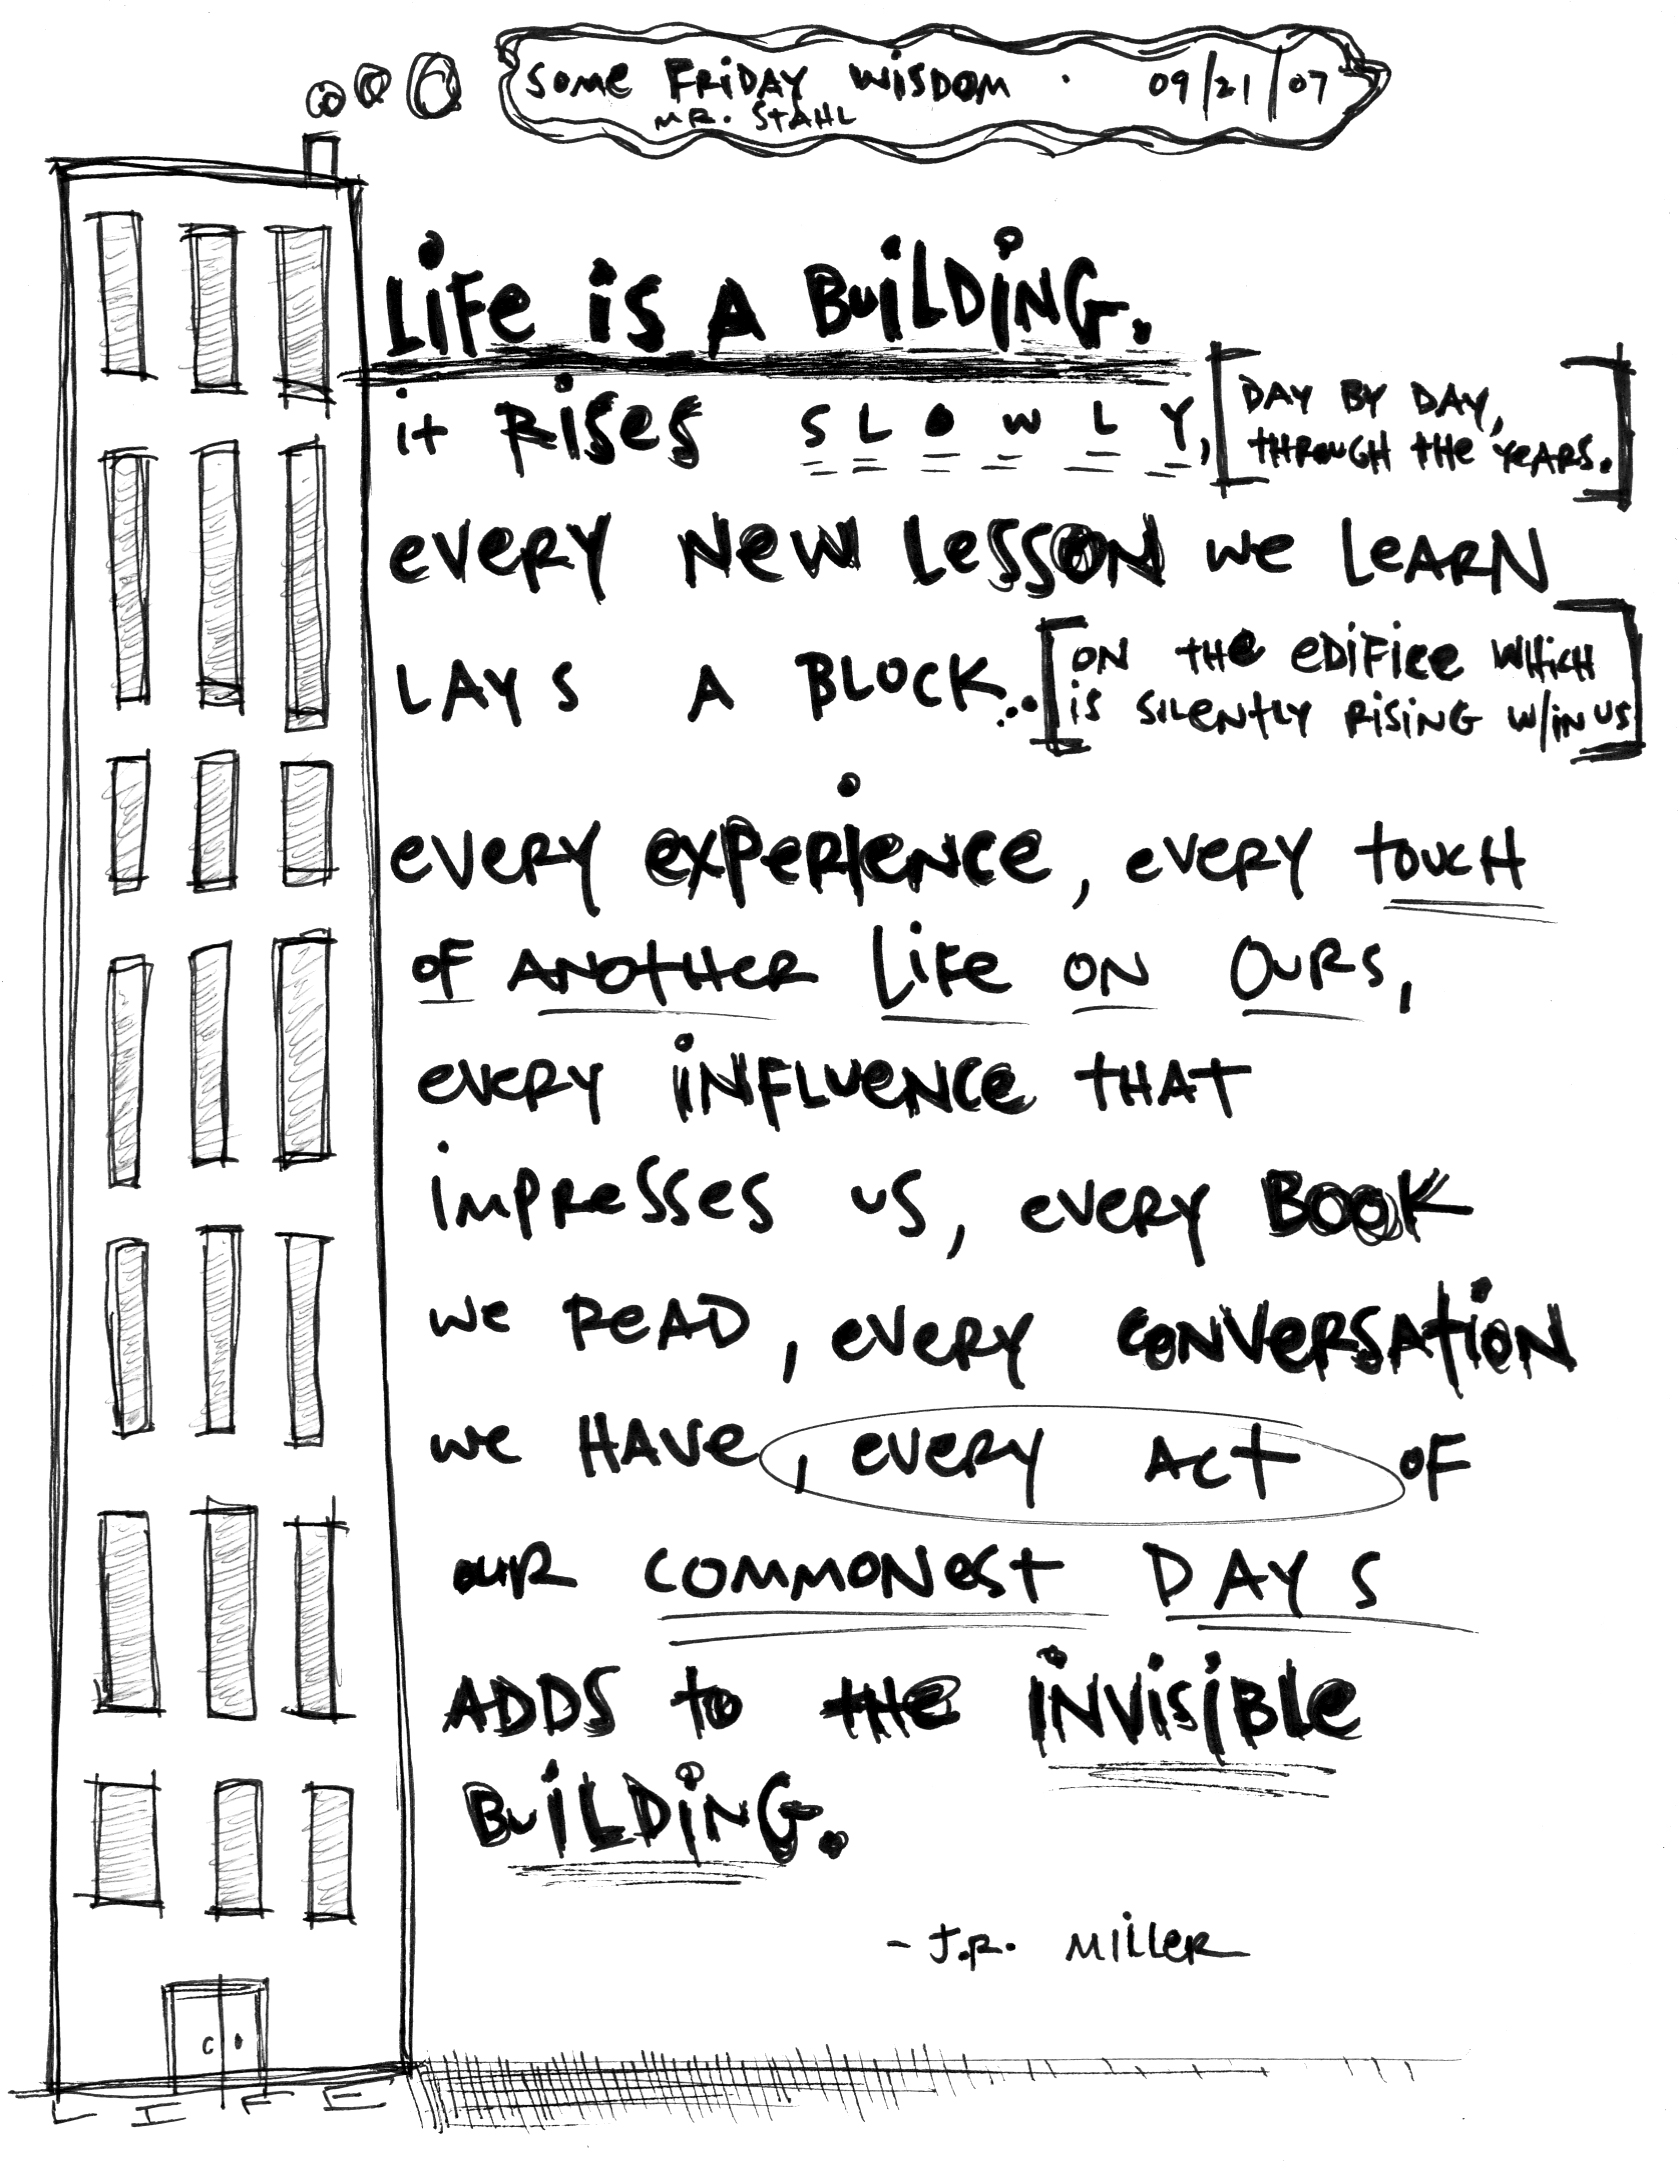 SOME FRIDAY WISDOM . 09/21/07
MR. STAHL
LIFE IS A BUILDING.
it RISES SLOWLY, [DAY BY DAY,
THROUGH THE YEARS.]
EVERY NEW LESSON WE LEARN
LAYS A BLOCK... [ON THE EDIFICE WHICH
IS SILENTLY RISING W/IN US]
EVERY EXPERIENCE, EVERY TOUCH
OF ANOTHER LIFE ON OURS,
EVERY INFLUENCE THAT
IMPRESSES US, EVERY BOOK
WE READ, EVERY CONVERSATION
WE HAVE, EVERY ACT OF
OUR COMMONEST DAYS
ADDS to THE INVISIBLE
BUILDING.
- J.R. MILLER
LIFE